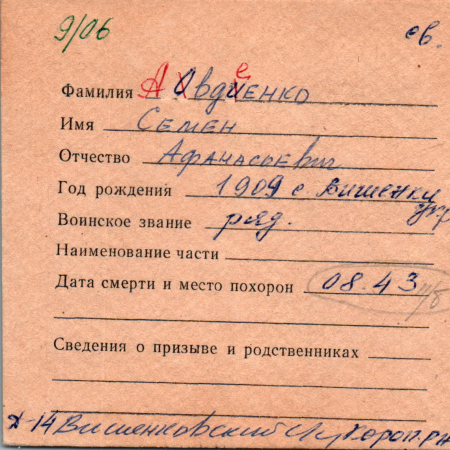 9/06 св.
Фамилия А Овдиенко е
Имя Семен
Отчество Афанасьевич
Год рождения 1909 с. Вишенки
укр
Воинское звание ряд.
Наименование части
Дата смерти и место похорон 08.43 п/б
Сведения о призыве и родственниках
14 Вишенковский